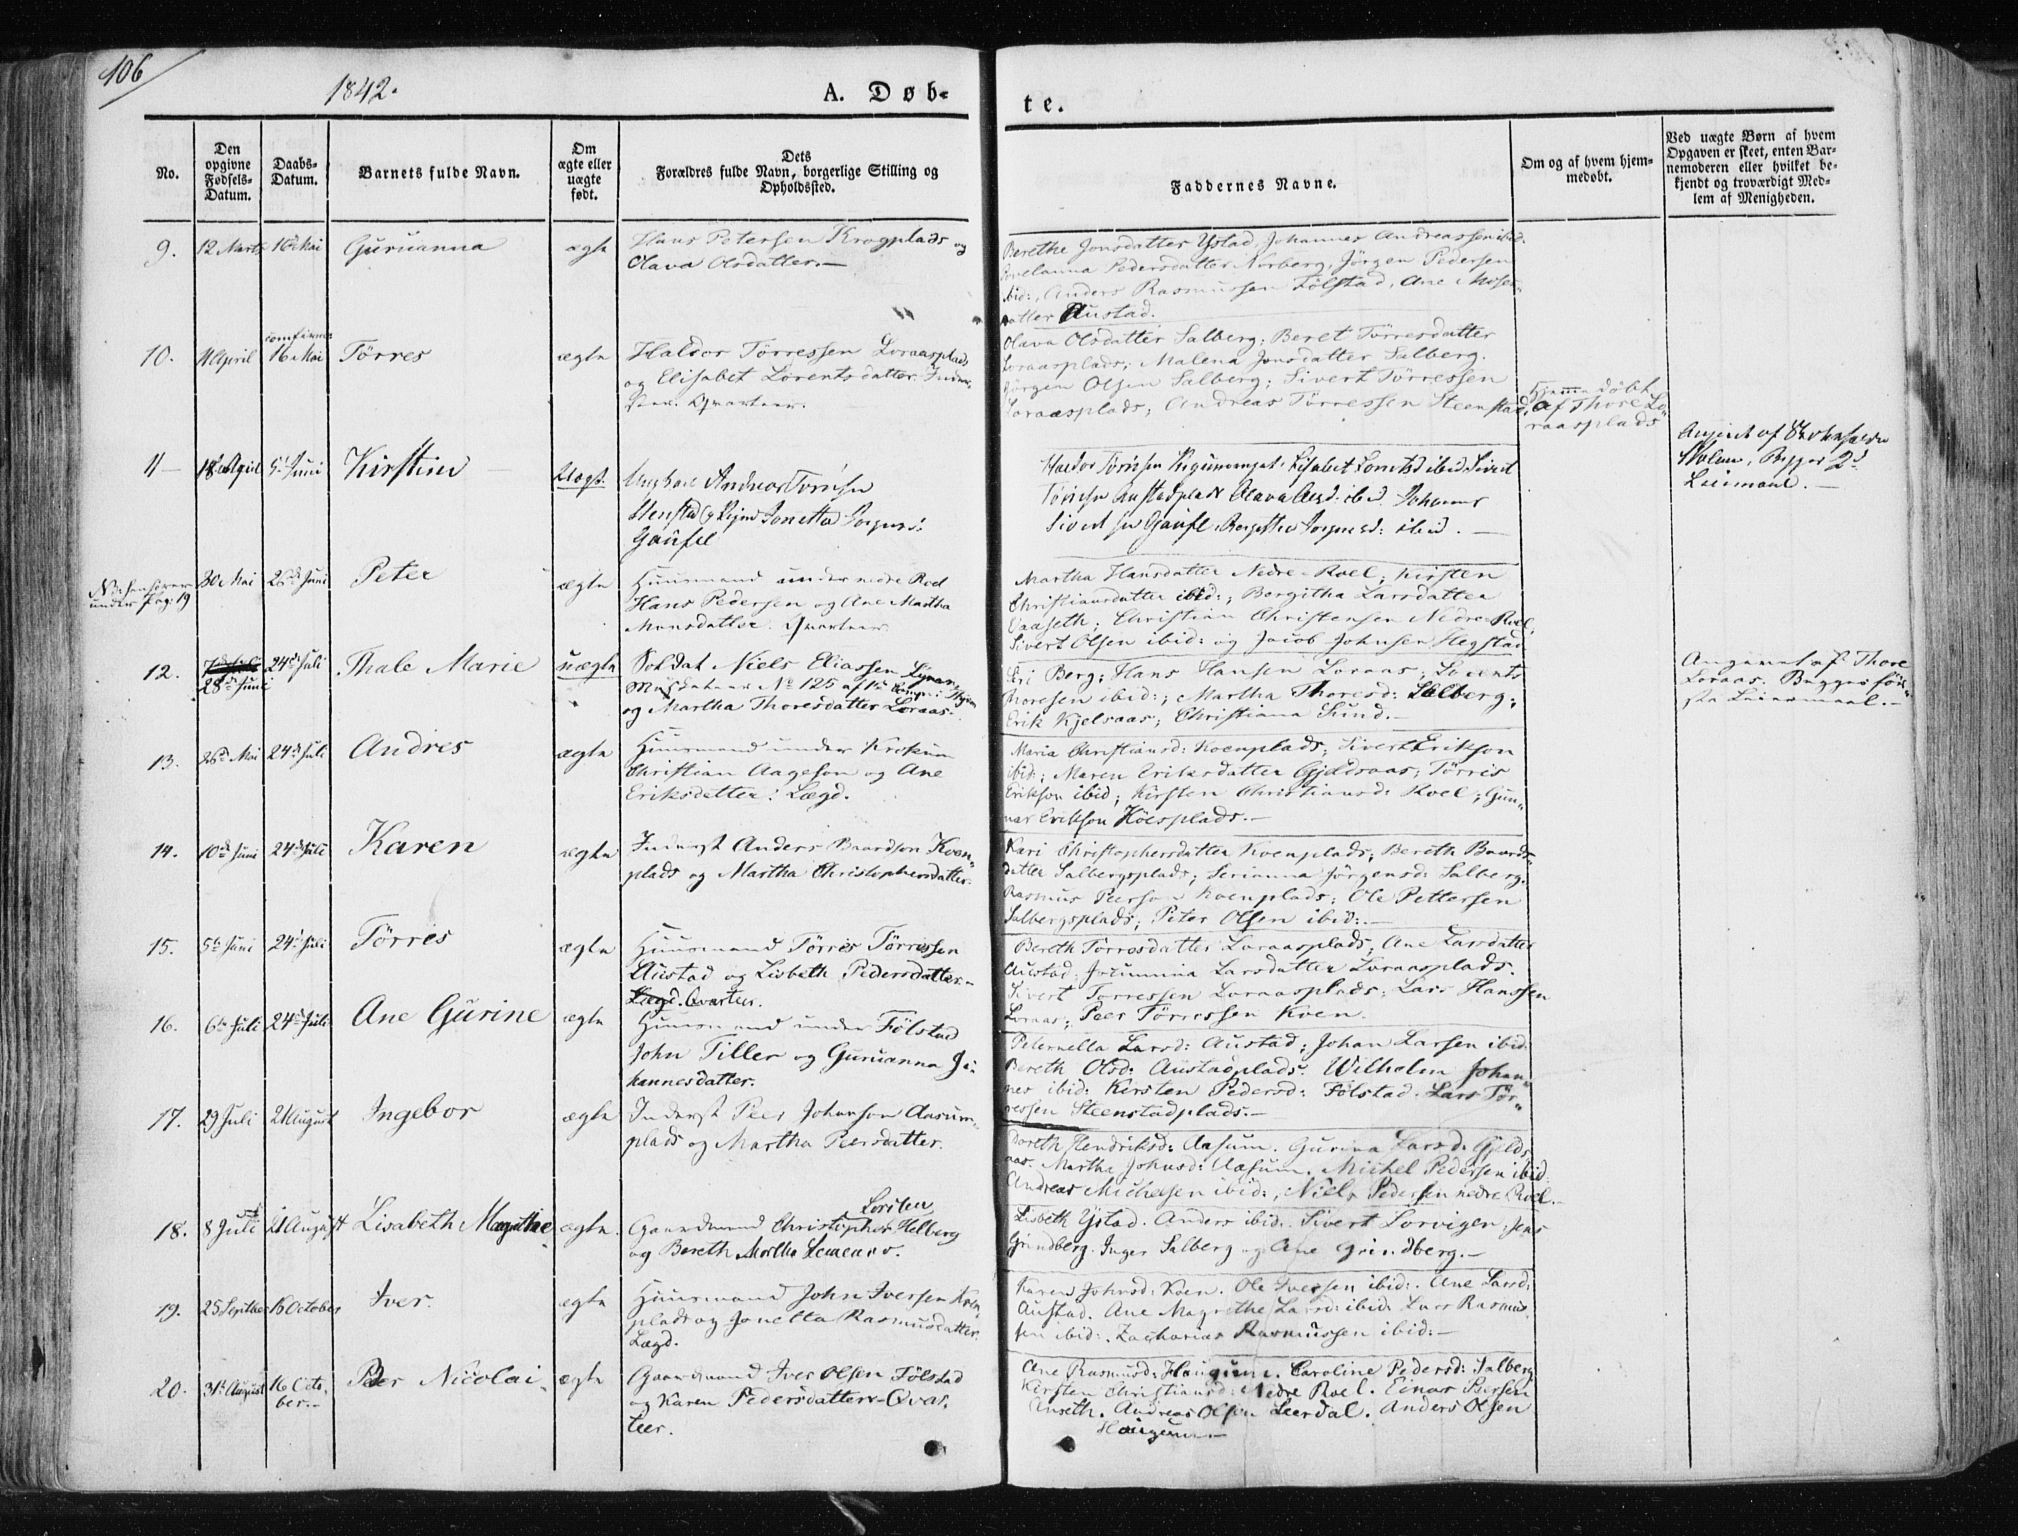 106
1842.
A. Døb-
te.
No.
Den
opgivne
Fødsels-
Datum.
Daabs-
Datum.
Barnets fulde Navn.
Om
ægte eller
uægte
født.
Dets
Forældres fulde Navn, borgerlige Stilling og
Opholdssted.
Faddernes Navne.
Om og af hvem hjem-
medøbt.
Ved uægte Børn af hvem
Opgaven er skeet, enten Bar-
nemoderen eller hvilket be-
kjendt og troværdigt Med-
lem af Menigheden.
9.
12 Marts
16de Mai
Guruanna
ægte
Hans Petersen Krogplads og
Olava Olsdatter.—
Berethe Jonsdatter Ystad, Johannes Andreassen ibid.
Povelanna Pedersdatter Norberg, Jörgen Pedersen
ibid:, Anders Rasmussen Fölstad, Ane
datter Austad.
10.
April
16 Mai
Törres
ægte
Haldor Törressen Loraasplads
og Elisabet Lorentsdatter.
Olava Olsdatter Salberg; Beret Törresdatter
Loraasplads; Malena Jonsdatter Salberg.
Jörgen Olsen Salberg; Sivert Törressen
Loraasplads; Andreas Törressen Steenstad,
Hjemme döbt
af Thore Lo
raasplads
11 —
18 April
5 Juni
Kirstine —
Uægt.
Ungkarl Andreas Torrisen
Stenstad og Jonetta
Gaufel
Haldor Torrisen Lisabet ibid Sivert
Torrisen Austadplads Olava ibid Johannes
Sivertsen Gaufel ibid. —
Angivet af
2d
Leiermaal. —
under Pag: 19
30 Mai
26de Juni
Peter
ægte
Huusmand under nedre Roel
Hans Pedersen og Ane Martha
Monsdatter.
Martha Hansdatter Nedre-Roel; Kirsten
Christiansdatter ibid:; Borgitha Larsdatter
Christian Christensen Nedre-Roel;
Sivert Olsen ibid: og Jacob Johnsen Hegstad
12.
28de Juni
24de Juli
Thale Marie
uægte
Soldat Niels Eliassen
No 125 af 1ste
og Martha Thoresdatter Loraas.
Berg; Hans Hansen Loraas; Lorents
Thoresen ibid:; Martha Thoresd: Salberg;
Erik Kjelsaas; Christiana Sund.—
Angivet af Thore
Loraas. Begges för-
ste Leiermaal.—
13.
26de Mai
24de Juli
Andres
ægte
Huusmand under
Christian Aageson og Ane
Eriksdatter: Lægd.
Maria Christiansd: Koenplads; Sivert Erikson
ibid:; Maren Eriksdatter Gjeldsaas; Törris
Erikson ibid; Kirsten Christiansd: Roel; Gun-
nar Erikson Höesplads.—
14.
10de Juni
24de Juli
Karen
ægte
Inderst Anders Baardson Koen-
plads og Martha Christophersdatter.
Kari Christophersdatter Koenplads; Bereth Baards-
datter Salbergsplads; Serianna Jörgensd: Salberg.
Rasmus Peerson Koenplads; Ole Pettersen
Salbergsplads; Peter Olsen ibid:.—
15.
5te Juni
24de Juli
Törres
ægte
Huusmand Törris Törressen
Austad og Lisbeth Pedersdatter.—
Lægd. Qvarteer.
Bereth Törresdatter Loraasplads; Ane Larsdatter
Austad; Larsdatter Loraasplads.
Sivert Torressen Loraasplads; Lars Hanssen
Loraas; Peer Törressen Koen.
16.
6te Juli
24de Juli
Ane Gurine
ægte
Huusmand under Fölstad
John Tiller og Guruanna Jo-
hannesdatter.
Peternella Larsd: Austad; Johan Larsen ibid.
Bereth Olsd: Austadplads. Wilhelm Johan-
nes ibid: Kirsten Pedersd: Fölstad. Lars Tör-
ressen Steenstadplads.—
17.
29 Juli
21 August
Ingebor
ægte
Inderst Peer Johanson Aasum-
plads og Martha Peersdatter.
Bereth Hendriksd: Aasum. Gurina Larsd: Gjelds-
aas. Martha Johnsd: Aasum. Michel Pedersen ibid.
Andreas Michelsen ibid:, Niels Pedersen nedre Roel.—
18.
8 Juli
21 August
Lisabeth Magathe
ægte.
Lorisen
Gaardmand Christopher Helberg
og Bereth Martha
Lisbeth Ystad. Anders ibid:. Sivert Lorvigen; Jens
Grindberg. Inger Salberg og Ane Grindberg.—
19.
25 Septbr
16 October
Iver.
ægte
Huusmand John Iversen Koen-
plads og Jonetta Rasmusdatter.
Lægd.
Karen Johnsd: Koen. Ole Iversen ibid:. Ane Larsd:
Austad. Ane Magrethe Larsd: ibid: Lars Rasmus-
sen ibid:. Zacharias Rasmussen ibid:—
20.
31te August
16 Octo-
ber.—
Peder Nicolai.
ægte
Gaardmand Iver Olsen Fölstad
og Karen Pedersdatter—Qvar-
teer.
Ane Rasmusd: Haugum. Caroline Pedersd: Salberg
Kirsten Christiansd: Nedre Roel. Einar Peersen
Andreas Olsen Leerdal. Anders Olsen
Haugum.—